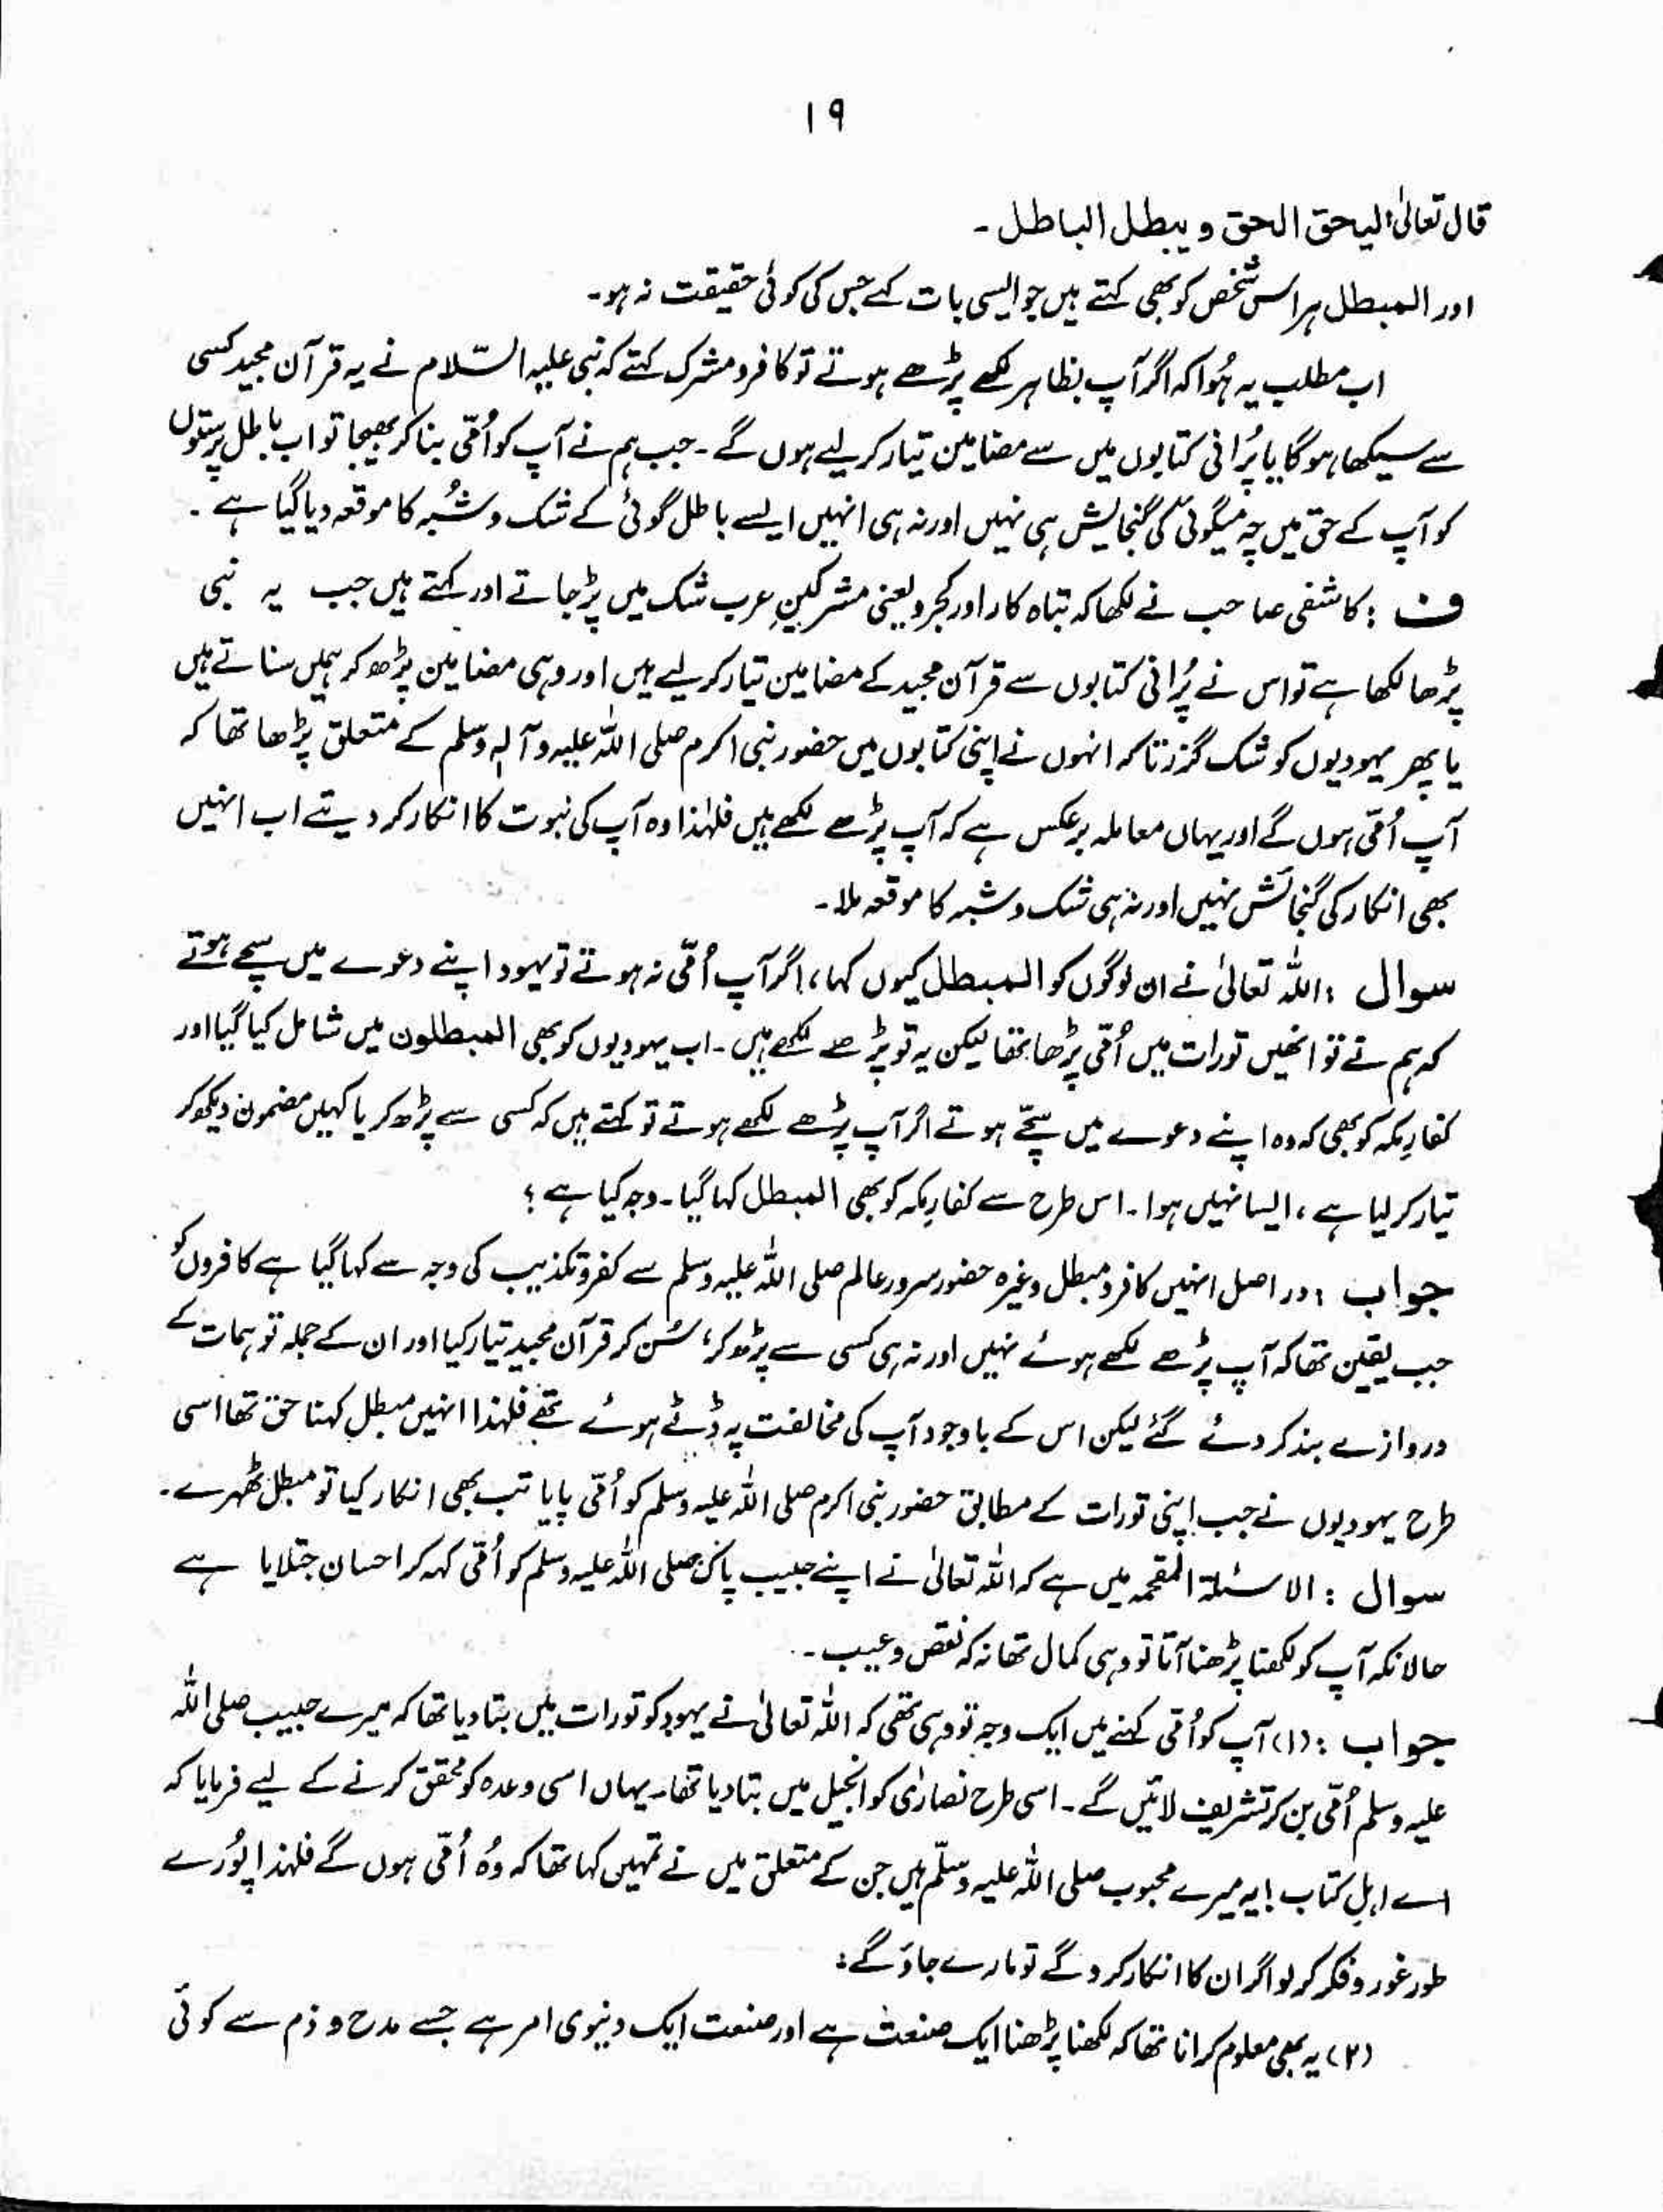 ۱۹
قال تعالیٰ الیحق الحق و یبطل الباطل ۔
اور المبطل ہر اس شخص کو بھی کہتے ہیں جو ایسی بات کہے جس کی کوئی حقیقت نہ ہو۔
اب مطلب یہ ہُوا کہ اگر آپ بظاہر لکھے پڑھے ہوتے تو کافر و مشرک کہتے کہ نبی علیہ السّلام نے یہ قرآن مجید کسی
سے سیکھا ہوگا یا پُرانی کتابوں میں سے مضامین تیار کر لیے ہوں گے ۔ جب ہم نے آپ کو اُمّی بنا کر بھیجا تو اب باطل پرستوں
کو آپ کے حق میں چہ میگوئی کی گنجایش ہی نہیں اور نہ ہی انہیں ایسے باطل گوئی کے شک و شُبہ کا موقعہ دیا گیا ہے ۔
ف : کاشفی صاحب نے لکھا کہ تباہ کار اور کجرو یعنی مشرکینِ عرب شک میں پڑ جاتے اور کہتے ہیں جب یہ نبی
پڑھا لکھا ہے تو اس نے پُرانی کتابوں سے قرآن مجید کے مضامین تیار کر لیے ہیں اور وہی مضامین پڑھ کر ہمیں سناتے ہیں
یا پھر یہودیوں کو شک گزرتا کہ انہوں نے اپنی کتابوں میں حضور نبی اکرم صلی اللہ علیہ وآلہ وسلم کے متعلق پڑھا تھا کہ
آپ اُمّی ہوں گے اور یہاں معاملہ برعکس ہے کہ آپ پڑھے لکھے ہیں فلہٰذا وہ آپ کی نبوت کا انکار کر دیتے اب انہیں
بھی انکار کی گنجائش نہیں اور نہ ہی شک و شبہ کا موقعہ ملا ۔
سوال : اللہ تعالیٰ نے ان لوگوں کو المبطل کیوں کہا ، اگر آپ اُمّی نہ ہوتے تو یہود اپنے دعوے میں سچے ہوتے
کہ ہم نے تو انھیں تورات میں اُمّی پڑھا تھا لیکن یہ تو پڑھے لکھے ہیں ۔ اب یہودیوں کو بھی المبطلون میں شامل کیا گیا اور
کفارِ مکہ کو بھی کہ وہ اپنے دعوے میں سچّے ہوتے اگر آپ پڑھے لکھے ہوتے تو کہتے ہیں کہ کسی سے پڑھ کر یا کہیں مضمون دیکھ کر
تیار کر لیا ہے ، ایسا نہیں ہوا ۔ اس طرح سے کفارِ مکہ کو بھی المبطل کہا گیا ۔ وجہ کیا ہے ؟
جواب : در اصل انہیں کافر و مبطل وغیرہ حضور سرورِ عالم صلی اللہ علیہ وسلم سے کفر و تکذیب کی وجہ سے کہا گیا ہے کافروں کو
جب یقین تھا کہ آپ پڑھے لکھے ہوئے نہیں اور نہ ہی کسی سے پڑھ کر ، سُن کر قرآن مجید تیار کیا اور ان کے جملہ توہمات کے
دروازے بند کر دئے گئے لیکن اس کے باوجود آپ کی مخالفت پہ ڈٹے ہوئے تھے فلہٰذا انہیں مبطل کہنا حق تھا اسی
طرح یہودیوں نے جب اپنی تورات کے مطابق حضور نبی اکرم صلی اللہ علیہ وسلم کو اُمّی پایا تب بھی انکار کیا تو مبطل ٹھہرے ۔
سوال : الاسئلۃ المقحمہ میں ہے کہ اللہ تعالیٰ نے اپنے حبیب پاک صلی اللہ علیہ وسلم کو اُمّی کہہ کر احسان جتلایا ہے
حالانکہ آپ کو لکھنا پڑھنا آتا تو وہی کمال تھا نہ کہ نقص و عیب ۔
جواب : (۱) آپ کو اُمّی کہنے میں ایک وجہ تو وہی تھی کہ اللہ تعالیٰ نے یہود کو تورات میں بتا دیا تھا کہ میرے حبیب صلی اللہ
علیہ وسلم اُمّی بن کر تشریف لائیں گے ۔ اسی طرح نصاریٰ کو انجیل میں بتا دیا تھا۔ یہاں اسی وعدہ کو محقق کرنے کے لیے فرمایا کہ
اے اہلِ کتاب ! یہ میرے محبوب صلی اللہ علیہ وسلّم ہیں جن کے متعلق میں نے تمہیں کہا تھا کہ وُہ اُمّی ہوں گے فلہٰذا پُورے
طور غور و فکر کر لو اگر ان کا انکار کرو گے تو مارے جاؤ گے :
(۲) یہ بھی معلوم کرانا تھا کہ لکھنا پڑھنا ایک صنعت ہے اور صنعت ایک دنیوی امر ہے جسے مدح و ذم سے کوئی